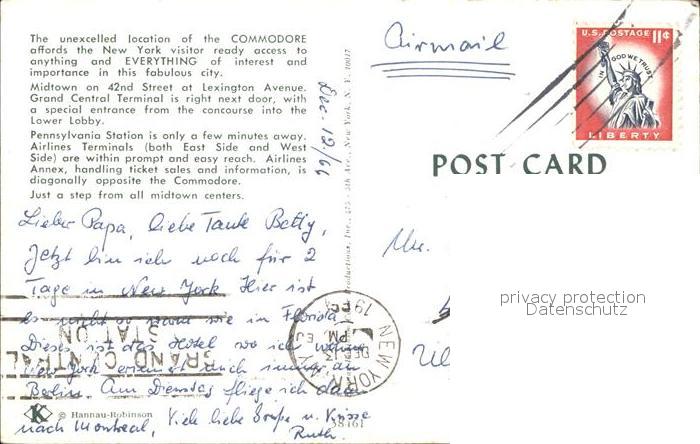 The unexcelled location of the COMMODORE
affords the New York visitor ready access to
anything and EVERYTHING of interest and
importance in this fabulous city.
Midtown on 42nd Street at Lexington Avenue.
Grand Central Terminal is right next door, with
a special entrance from the concourse into the
Lower Lobby.
Pennsylvania Station is only a few minutes away.
Airlines Terminals (both East Side and West
Side) are within prompt and easy reach. Airlines
Annex, handling ticket sales and information, is
diagonally opposite the Commodore.
Just a step from all midtown centers.
Dec. 12/66
Lieber Papa, liebe Tante Betty,
Jetzt bin ich noch für 2
Tage in New York Hier ist
es nicht so warm wie in Florida
Dieses ist das Hotel wo ich wohne
New York erinnert mich immer an
Berlin. Am Dienstag fliege ich dann
nach Montreal, Viele liebe Grüße u. Küsse
Ruth.
GRAND CENTRAL
STATION
K
© Hannau-Robinson
58461
Productions, Inc., 475 - 5th Ave., New York, N. Y. 10017
Airmail
U.S. POSTAGE 11¢
IN GOD WE TRUST
LIBERTY
POST CARD
NEW YORK, N.Y.
DEC
13
PM
19
privacy protection
Datenschutz